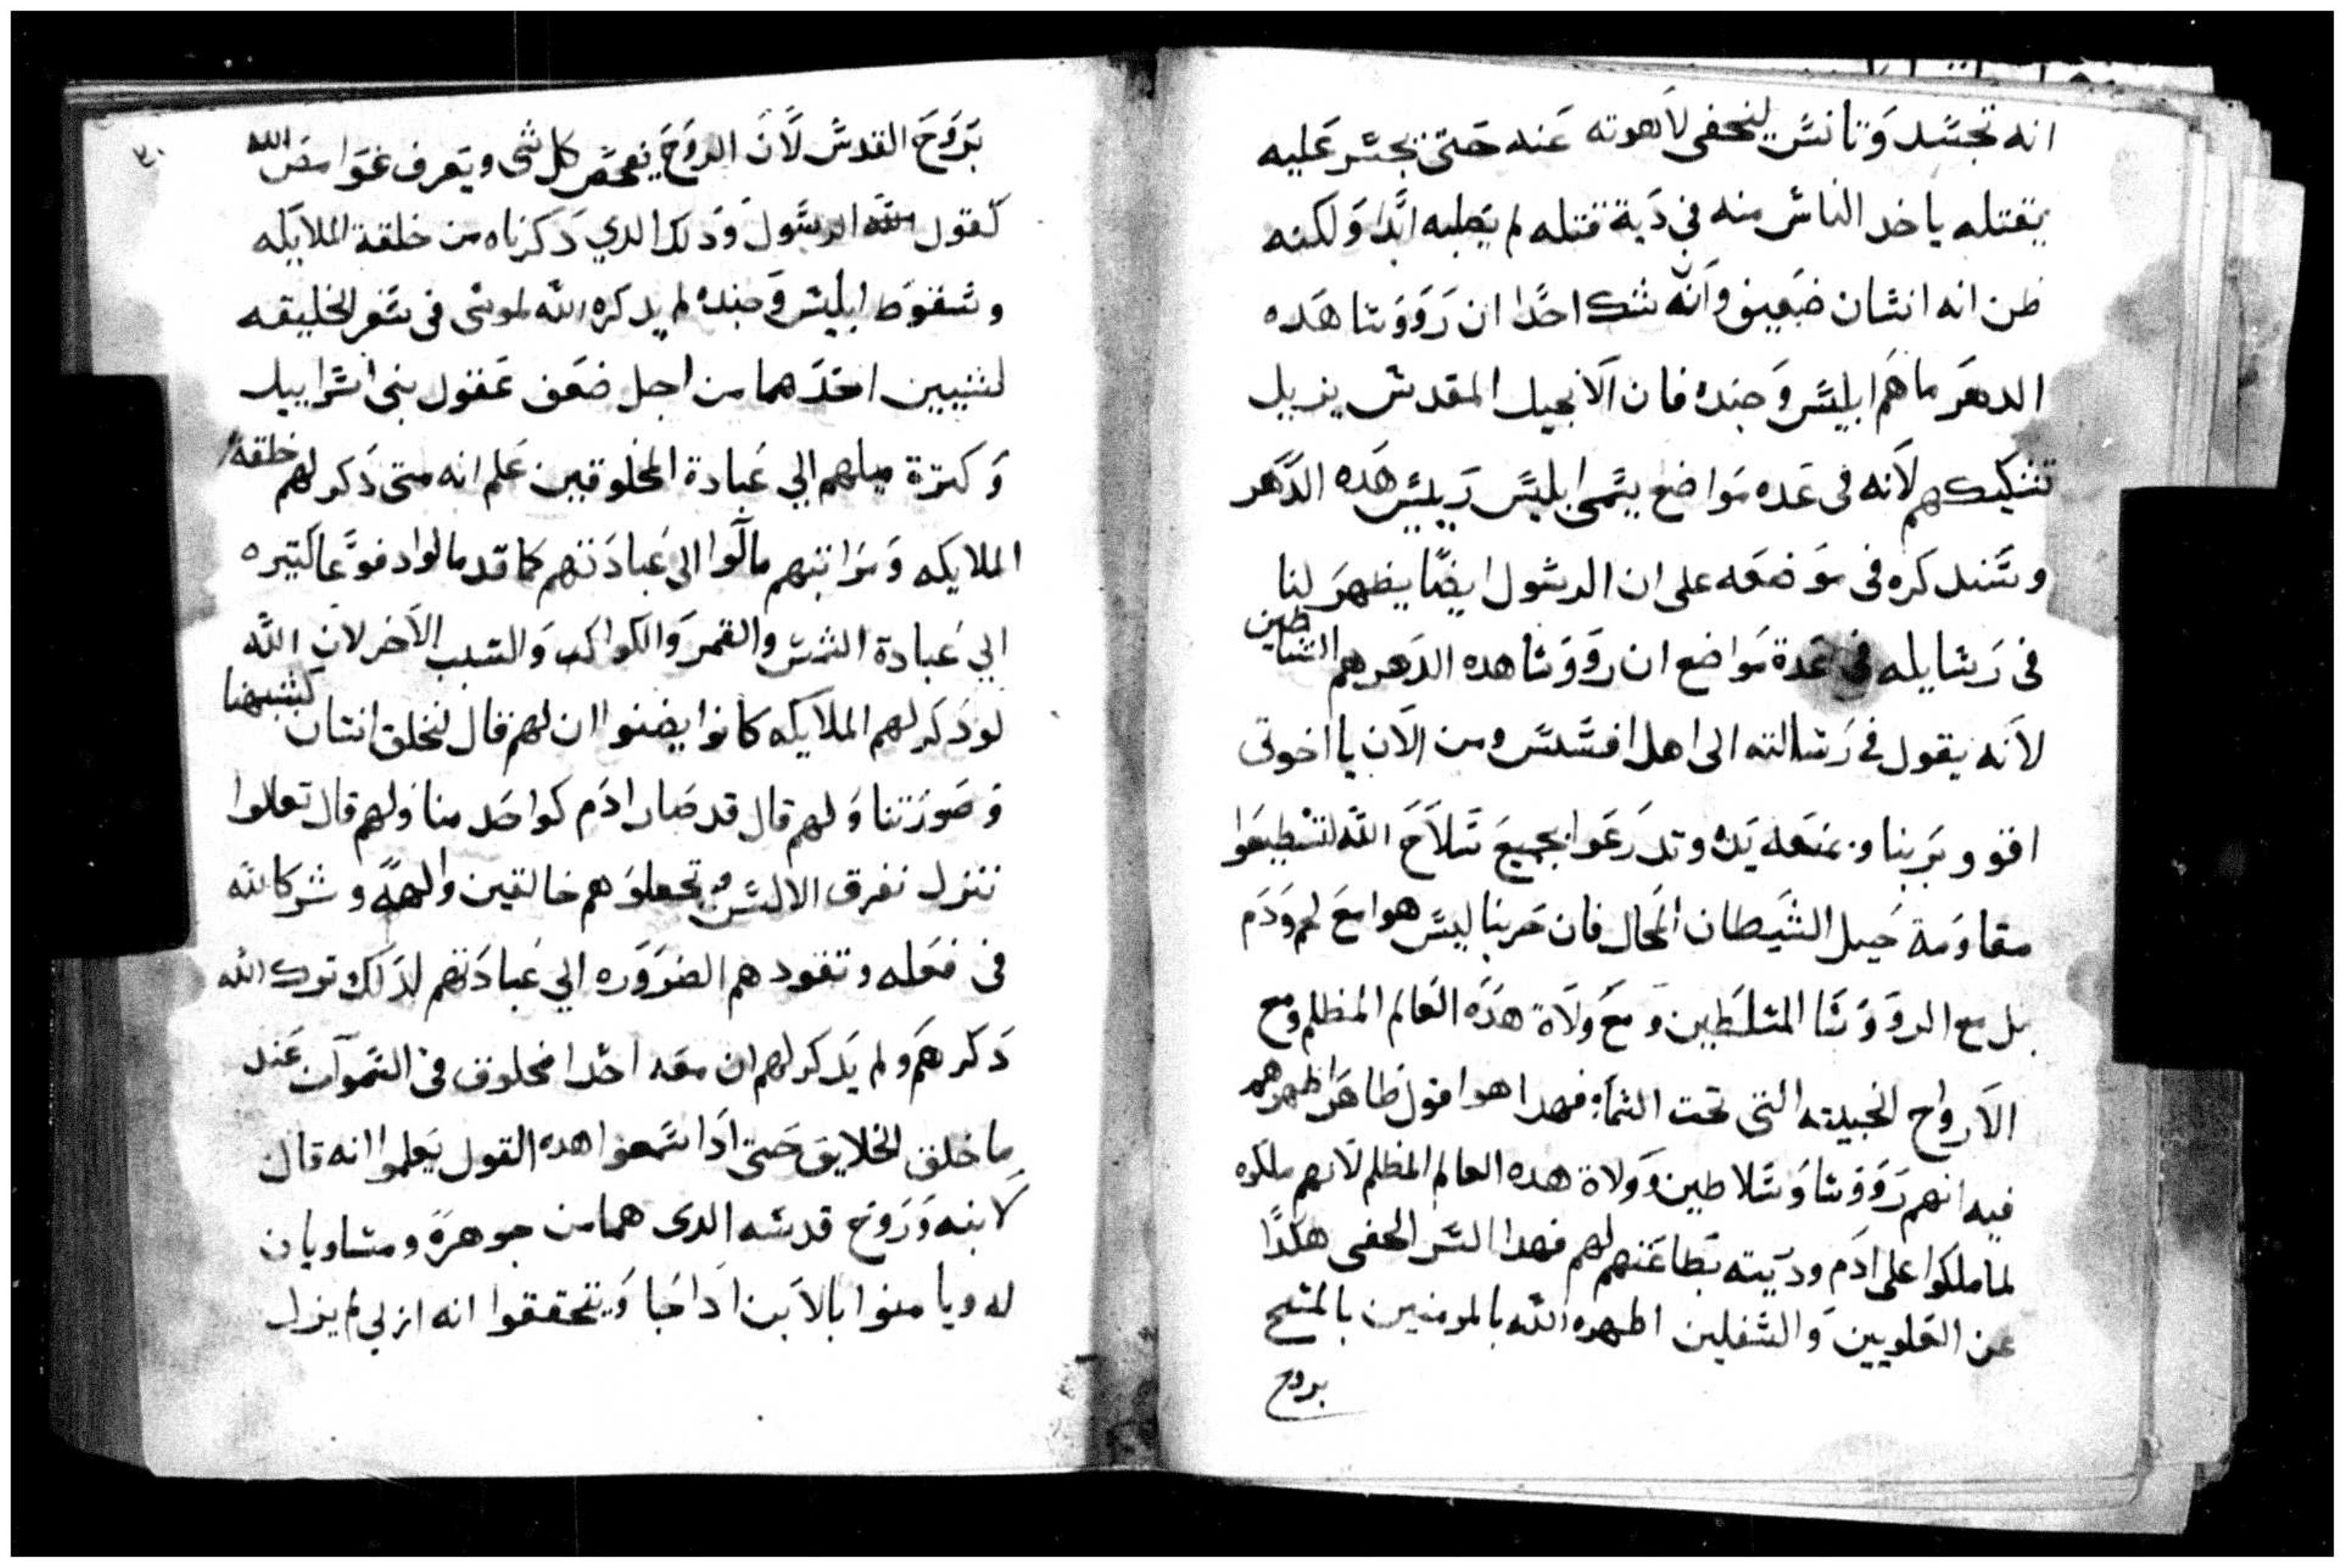 انه تجسد وتانس ليخفى لاهوته عنه حتى يجسر عليه
يقتله ياخد الناس منه في دية قتله لم يصلبه ابدا ولكنه
ظن انه انسان ضعيف وانه شك احدا ان رووسا هده
الدهر ما هم ابليس وجنده فان الانجيل المقدس يزيل
تشكيكهم لانه فى عده مواضع يسمى ابليس رييس هده الدهر
وسندكره فى موضعه على ان الرسول ايضا يظهر لنا
فى رسايله في عدة مواضع ان رووسا هده الدهر هم الشياطين
لانه يقول في رسالته الى اهل افسس ومن الان يا اخوتى
اقوو بربنا وبمنعة يده وتدرعوا بجميع سلاح الله لتستطيعوا
مقاومة حيل الشيطان المحال فان حربنا ليس هوا مع لحم ودم
بل مع الروووسا المسلطين ومع ولاة هده العالم المظلم ومع
الارواح الخبيته التى تحت السما فهدا هوا قول ظاهر اظهر هم
فيه انهم روووسا وسلاطين وولاة هده العالم المظلم لانهم ملكوه
لما ملكوا على ادم ودريته بطاعتهم لهم فهدا السر الخفى هكدا
عن العلويين والسفلين اظهره الله بالمومنين بالمسيح
بروح
٣٠
بروح القدس لان الروح يفحص كل شى ويعرف غوامض الله
كقول الله الرسول ودلك الدي دكرناه من خلقة الملايكه
وسقوط ابليس وجنده لم يدكره الله لموسى فى سفر الخليقه
لسببين احدهما من اجل ضعف عقول بنى اسراييل
وكترة ميلهم الي عبادة المخلوقين علم انه متى دكر لهم خلقة
الملايكه ومراتبهم مالوا الى عبادتهم كما قد مالوا دفوعا كتيره
الي عبادة الشمس والقمر والكواكب والسبب الاخر لان الله
لو دكر لهم الملايكه كانوا يضنوا ان لهم قال لنخلق انسان كشبهنا
وصورتنا ولهم قال قد صار ادم كواحد منا ولهم قال تعالوا
ننزل نفرق الالسن وتجعلوهم خالقين والهه وشركا لله
فى فعله وتقودهم الضروره الي عبادتهم لدلك ترك الله
دكرهم ولم يدكر لهم ان معه احدا مخلوق فى السموات عند
ما خلق الخلايق حتى ادا سمعوا هده القول يعلموا انه قال
لابنه وروح قدسه الدى هما من جوهره ومساويان
له ويامنوا بالابن ادا جا ويتحققوا انه ازلي لم يزل